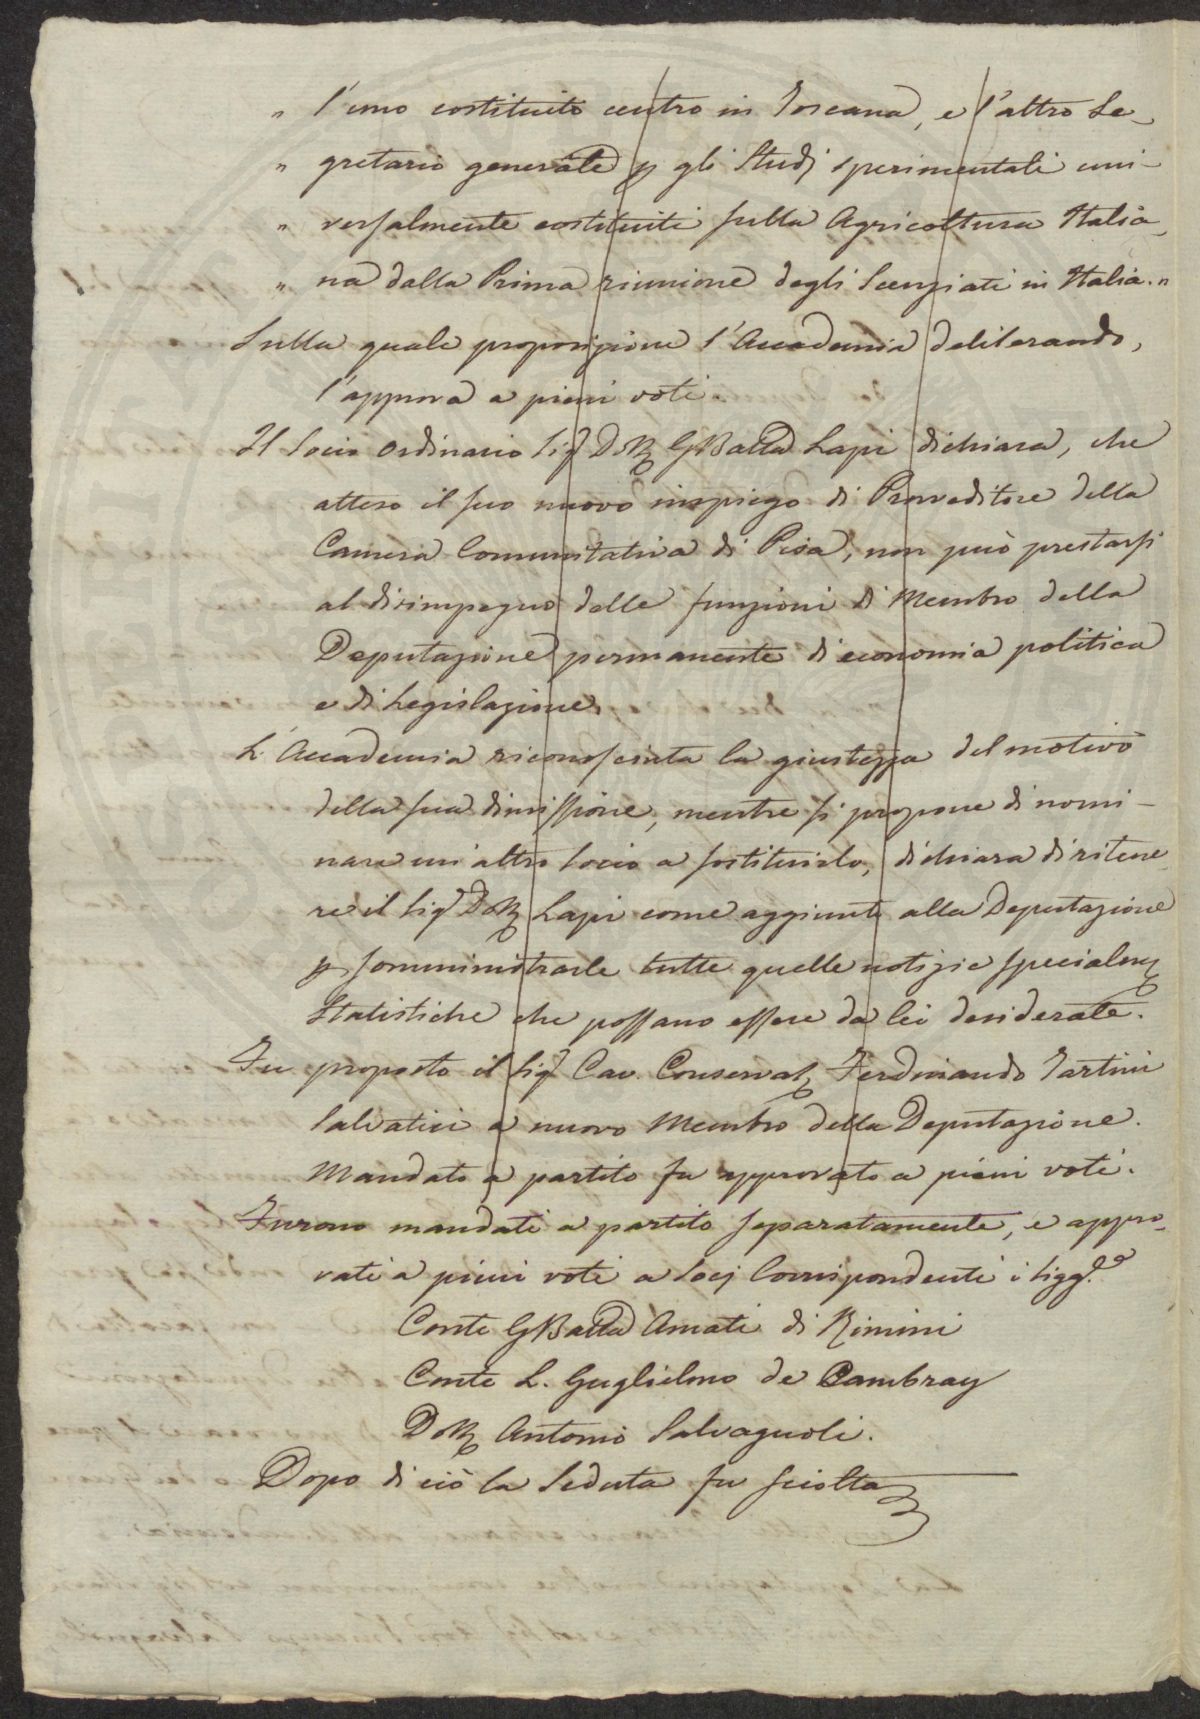 " l'uno costituito centro in Toscana, e l'altro Se-
" gretario generale p gli Studj sperimentali uni-
" versalmente costituiti sulla Agricoltura Italia-
" na dalla Prima riunione degli Scenziati in Italia. "
Sulla quale proposizione l'Accademia deliberando,
l'approva a pieni voti.
Il Socio Ordinario Sigr Dott GBatta Lapi dichiara, che
atteso il suo nuovo impiego di Provveditore della
Camera Comunitativa di Pisa, non può prestarsi
al disimpegno delle funzioni di Membro della
Deputazione permanente di economia politica
e di Legislazione.
L'Accademia riconosciuta la giustezza del motivo
della sua dimissione, mentre si propone di nomi-
nare un'altro socio a sostituirlo, dichiara di ritene-
re il Sigr Dott Lapi come aggiunto alla Deputazione
p somministrarle tutte quelle notizie specialm
Statistiche che possano essere da lei desiderate.
Fu proposto il Sigr Cav. Conservat Ferdinando Tartini
Salvatici a nuovo Membro della Deputazione.
Mandato a partito fu approvato a pieni voti.
Furono mandati a partito separatamente, e appro-
vati a pieni voti a Socj Corrispondenti i Siggri
Conte GBatta Amati di Rimini
Conte L. Guglielmo de Cambray
Dott Antonio Salvagnoli.
Dopo di ciò la Seduta fu sciolta